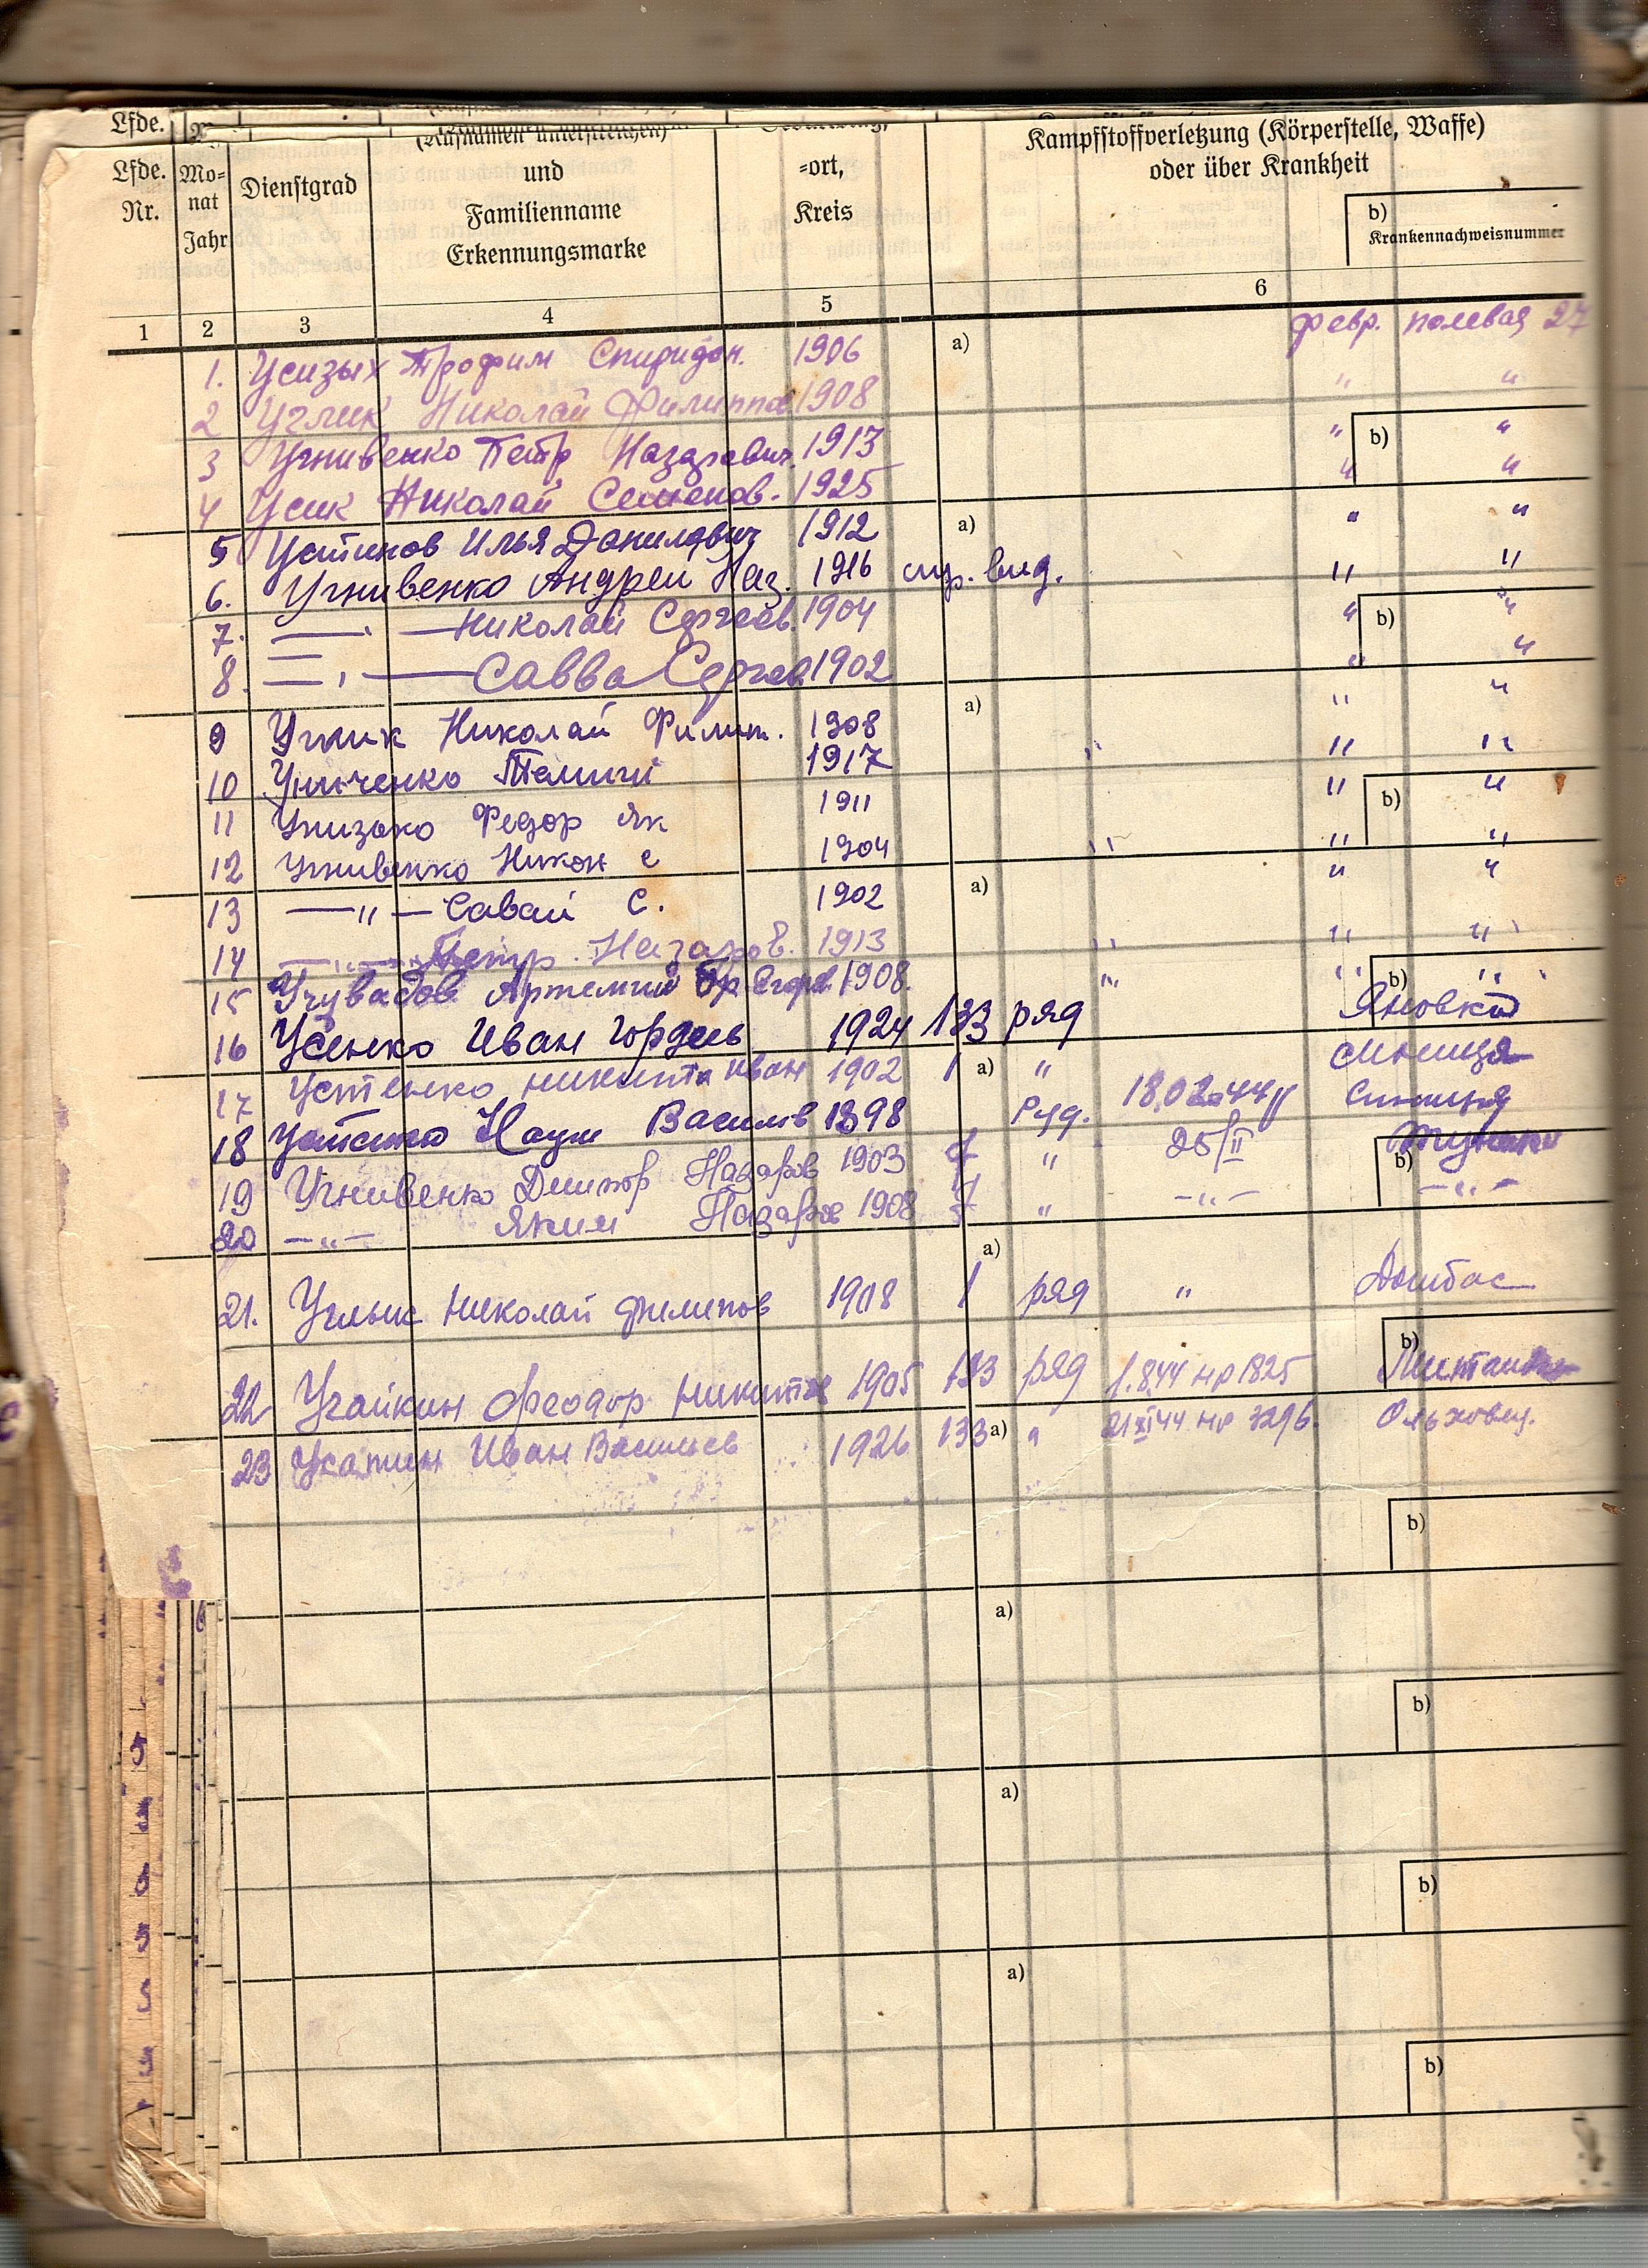 Lfde.
Kampfstoffverletzung (Körperstelle, Waffe)
oder über Krankheit
Lfde. Nr.
Mo=
nat
Jahr
Dienstgrad
und
Familienname
Erkennungsmarke
=ort,
Kreis
b)
Krankennachweisnummer
1 2 3 4 5 6
февр. полевая 27
1. Усизых Трофим Спиридон. 1906 a)
2 Углик Николай Филиппов 1908 " "
3 Угнивенко Петр Назарович 1913 " b) "
4 Усик Николай Семенов. 1925 " "
5 Устинов Илья Данилович 1912 a) " "
6. Угнивенко Андрей Наз. 1916 " "
7. — Николай Сергеев. 1904 " b) "
8. — Савва Сергеев 1902 " "
9 Углик Николай Филип. 1908 a) " "
10 1917 " " "
11 Федор Як 1911 " b) "
12 Угнивенко Никон с 1904 " " "
13 —"— Савай С. 1902 a) " "
14 —"— Петр. Назаров. 1913 " " "
15 Артемий 1908. " " b) "
16 Усенко Иван Гордеев 1924 133 ряд Яновка
17 Устенко Никита Иван 1902 1 a) "
18 Устенко Наум Васильев 1898 Ряд. 18.02.44 Синица
19 Угнивенко Дмитр Назаров 1903 " 25/II b)
20 —"— Яким Назаров 1908 " —"— —"—
a)
21. Углык Николай Филипов 1908 1 ряд " Донбас
b)
22 Угайкин Феодор Никитов 1905 133 ряд 1.8.44 нр 1825
23 Иван Васильев 1926 133 a) " 21 XI 44 нр 3296. Ольховец.
b)
a)
b)
a)
b)
a)
b)